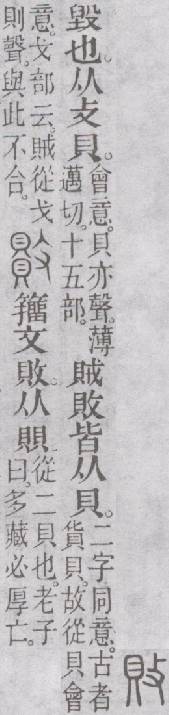 敗
毀也。从攴貝。會意。貝亦聲。薄邁切。十五部。賊敗皆从貝。二字同意。古者貨貝。故從貝會
意。戈部云。賊從戈則聲。與此不合。𣀕籒文敗。从賏。從二貝也。老子曰。多藏必厚亡。